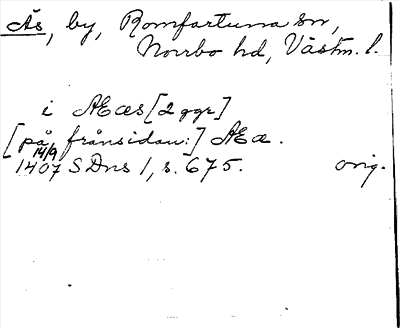 Ås, by, Romfartuna sn,
Norrbo hd, Västm. l.
i Æs [2 ggr]
[på frånsidan:] Æ.
14/9
1407 SDns 1, s. 675. orig.